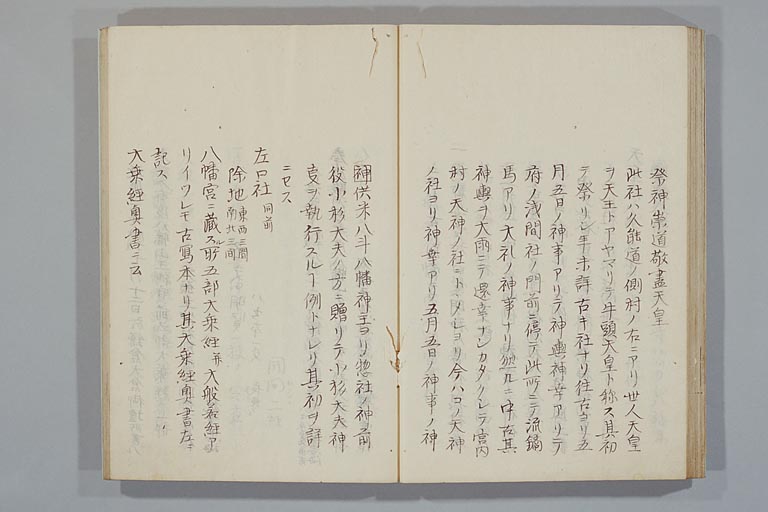 祭神崇道敬盡天皇
此社ハ久能道ノ側村ノ右ニアリ世人天皇
ヲ天王トアヤマリテ牛頭天皇ト称ス其初
テ祭リシ年未詳古キ社ナリ往古ヨリ五
月五日ノ神事アリテ神輿神幸アリテ
府ノ浅間社ノ門前ニ停テ此所ニテ流鏑
馬アリ大礼ノ神事ナリ然ルニ中古其
神輿ヲ大雨ニテ還幸ナシカタクシテ宮内
村ノ天神ノ社ニトヽメシヨリ今ハコノ天神
ノ社ヨリ神幸アリ五月五日ノ神事ノ神
神供米八斗八幡神主ヨリ惣社ノ神前
役小杉大夫ノ方ニ贈リテ小杉大夫神
事ヲ執行スルヿ例トナレリ其初ヲ詳
ニセス
左口社 同前
除地 東西三間 南北三間
八幡宮ニ蔵スル所五部大乗経并大般若経ア
リイツレモ古写本ナリ其大乗経奥書左ニ
記ス
大乗経奥書ニ云